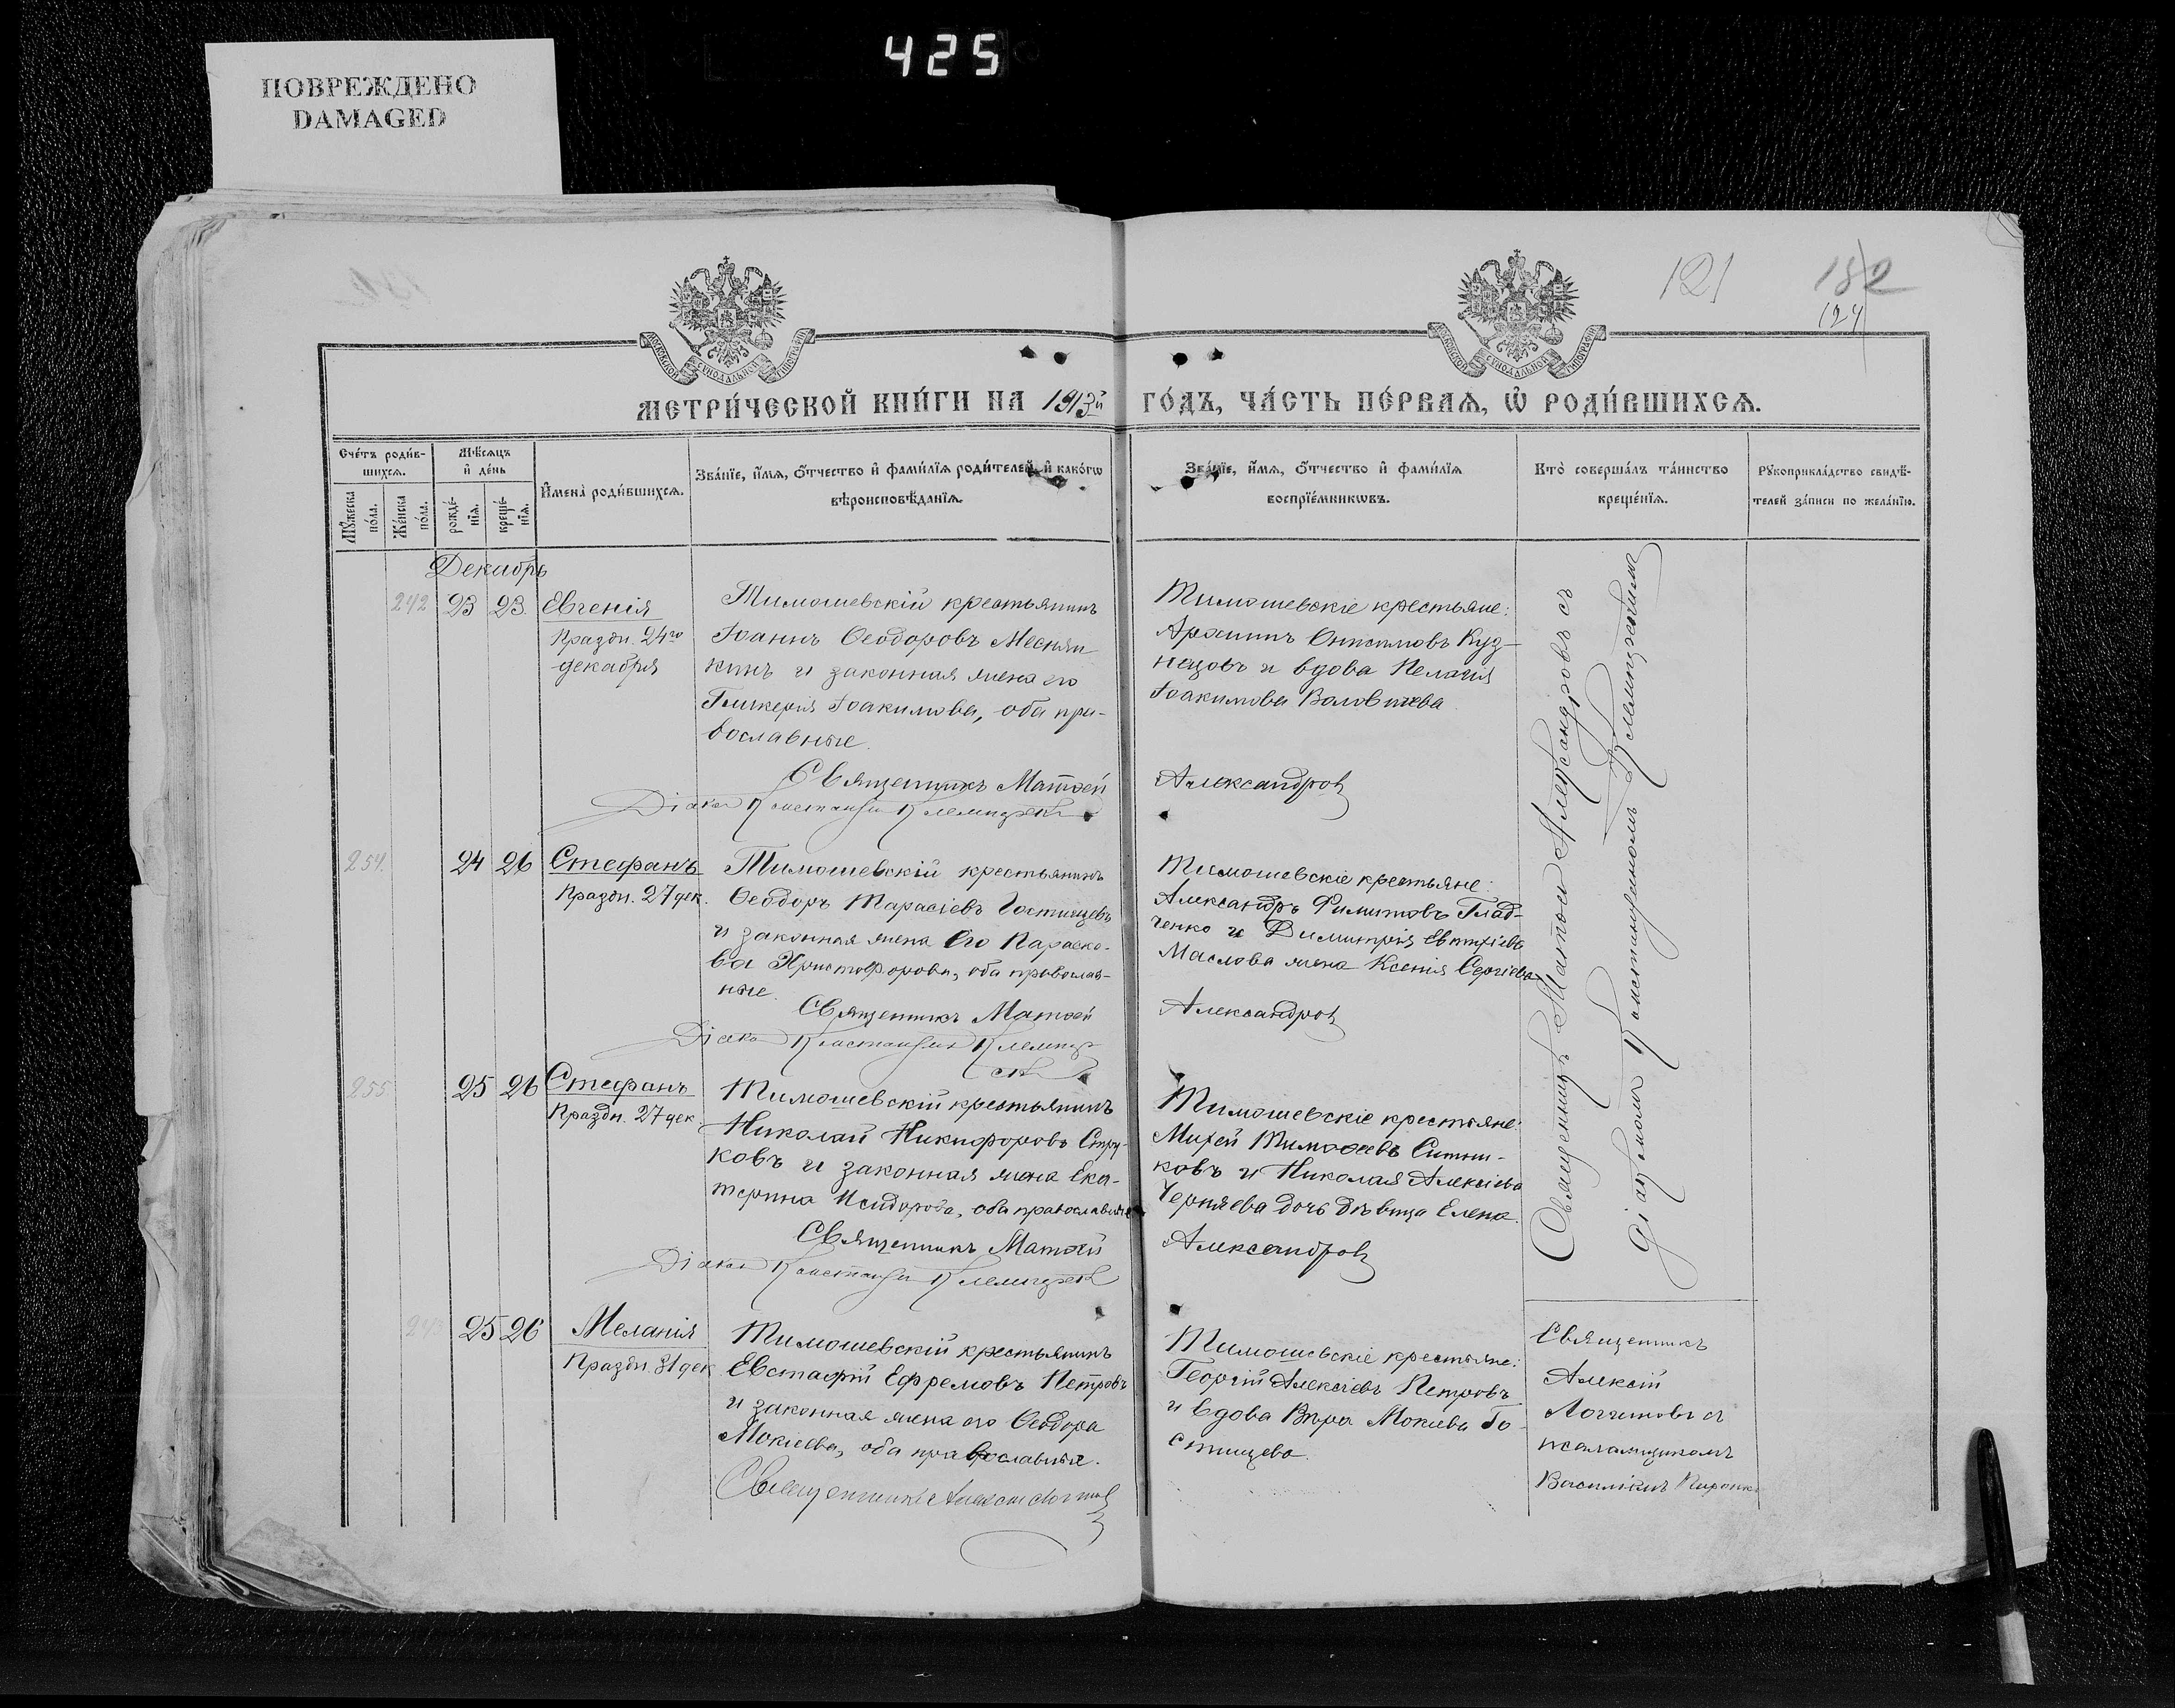 425
ПОВРЕЖДЕНО
DAMAGED
121
182
124
МЕТРИ́ЧЕСКОЙ КНИ́ГИ НА 1913й ГО́ДЪ, ЧА́СТЬ ПЕ́РВАѦ, Ѡ҆ РОДИ́ВШИХСѦ.
Сче́тъ роди́вшихсѧ.
Мꙋ́жеска по́ла.
Же́нска по́ла.
Мѣ́сѧцъ и҆ де́нь
рожде́нїѧ.
креще́нїѧ.
И҆мена̀ роди́вшихсѧ.
Зва́нїе, и҆́мѧ, ѻ҆́тчество и҆ фами́лїѧ роди́телей, и҆ како́гѡ
вѣроисповѣ́данїѧ.
Зва́нїе, и҆́мѧ, ѻ҆́тчество и҆ фами́лїѧ
воспрїе́мникѡвъ.
Кто̀ соверша́лъ та́инство
креще́нїѧ.
Рꙋкоприкла́дство свидѣ́-
телей за́писи по жела́нїю.
Декабрь
242 23 23 Евгенія
Праздн. 24го
декабря
Тимошевскій крестьянинъ
Іоаннъ Ѳеодоровъ Месняп-
кинъ и законная жена его
Гликерія Іоакимова, оба пра-
вославные.
Священникъ Матѳей
Діаконъ Константинъ
Тимошевскіе крестьяне:
Архиппъ Онисимовъ Куз-
нецовъ и вдова Пелагія
Іоакимова
Александровъ
254. 24 26 Стефанъ
Праздн. 27 дек.
Тимошевскій крестьянинъ
Ѳеодоръ Тарасіевъ Гостищевъ
и законная жена его Параске-
ва Христофорова, оба православ-
ные.
Священникъ Матѳей
Діаконъ Константинъ
Тимошевскіе крестьяне:
Александръ Филиповъ Глад-
ченко и Димитрія Евтихіева
Маслова жена Ксенія Сергіева
Александровъ
255 25 26 Стефанъ
Праздн. 27 дек
Тимошевскій крестьянинъ
Николай Никифоровъ Стру-
ковъ и законная жена Ека-
терина Исидорова, оба православные
Священникъ Матѳей
Діаконъ Константинъ
Тимошевскіе крестьяне:
Михей Тимоѳеевъ Ситни-
ковъ и Николая Алексіева
Черняева дочь дѣвица Елена.
Александровъ
Священникъ Матѳей Александровъ съ
діакономъ Константиномъ
243 25 26 Меланія
Праздн. 31 дек
Тимошевскій крестьянинъ
Евстафій Ефремовъ Петровъ
и законная жена его Ѳеодора
Мокіева, оба православные.
Священникъ Алексій
Тимошевскіе крестьяне:
Георгій Алексіевъ Петровъ
и вдова Вѣра Мокіева Го-
стищева.
Священникъ
Алексій
Логиновъ съ
псаломщикомъ
Василіемъ